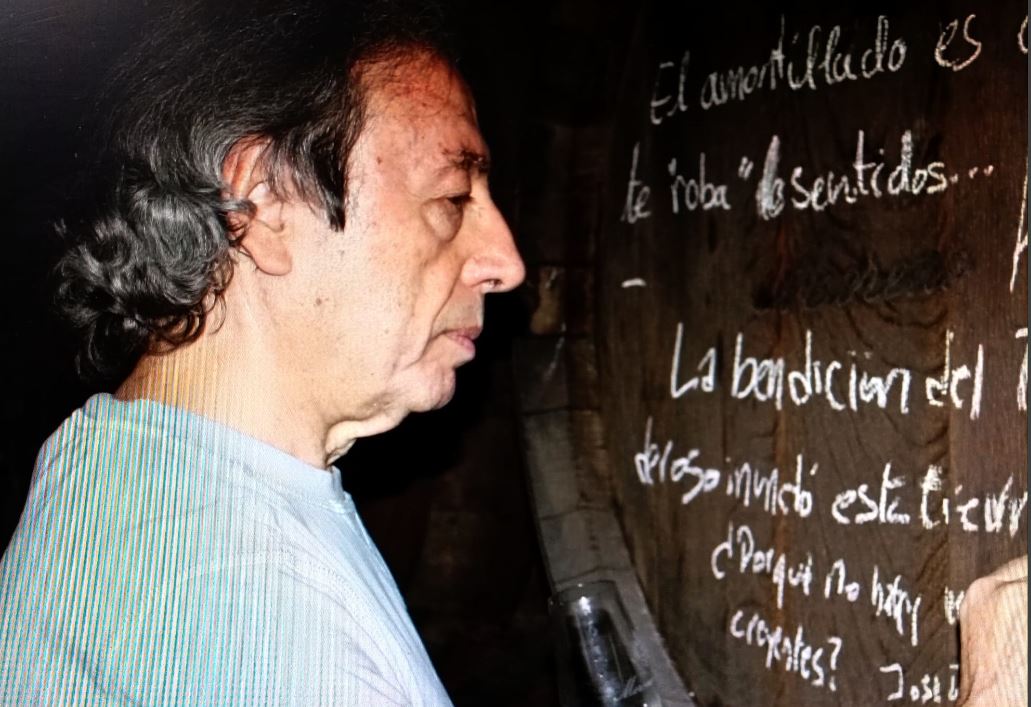 El amontillado es
te "roba" los sentidos...
La bendición del
deroso inundó esta tierr
¿Porqué no hay
creyentes?
José